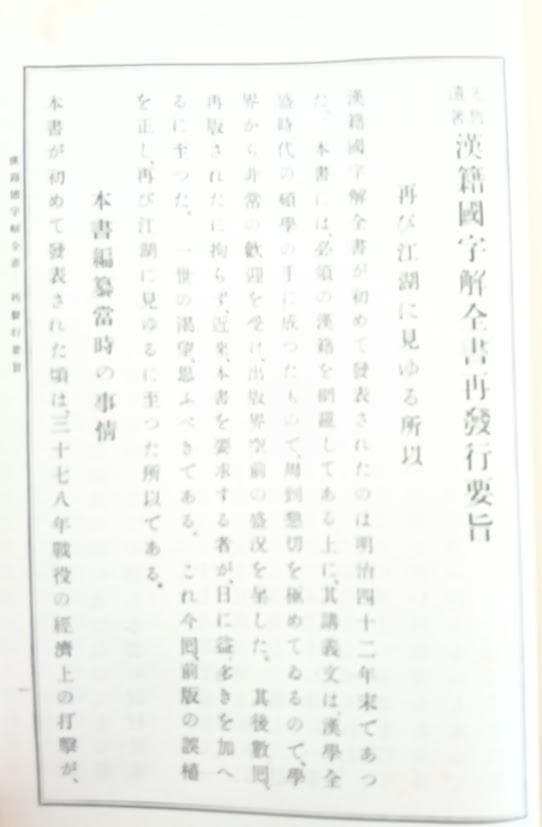 先哲
遺著
漢籍國字解全書再發行要旨
再び江湖に見ゆる所以
漢籍國字解全書が初めて發表されたのは明治四十二年末であつ
た。本書には、必須の漢籍を網羅してある上に、其講義文は、漢學全
盛時代の碩學の手に成つたもので、周到懇切を極めてゐるので、學
界から非常の歡迎を受け、出版界空前の盛況を呈した。其後數囘、
再版されたに拘らず、近來、本書を要求する者が、日に益〻多きを加へ
るに至つた。一世の渴望、思ふべきである。これ今囘、前版の誤植
を正し、再び江湖に見ゆるに至つた所以である。
本書編纂當時の事情
本書が初めて發表された頃は、三十七八年戰役の經濟上の打擊が、
漢籍國字解全書 再發行要旨
一